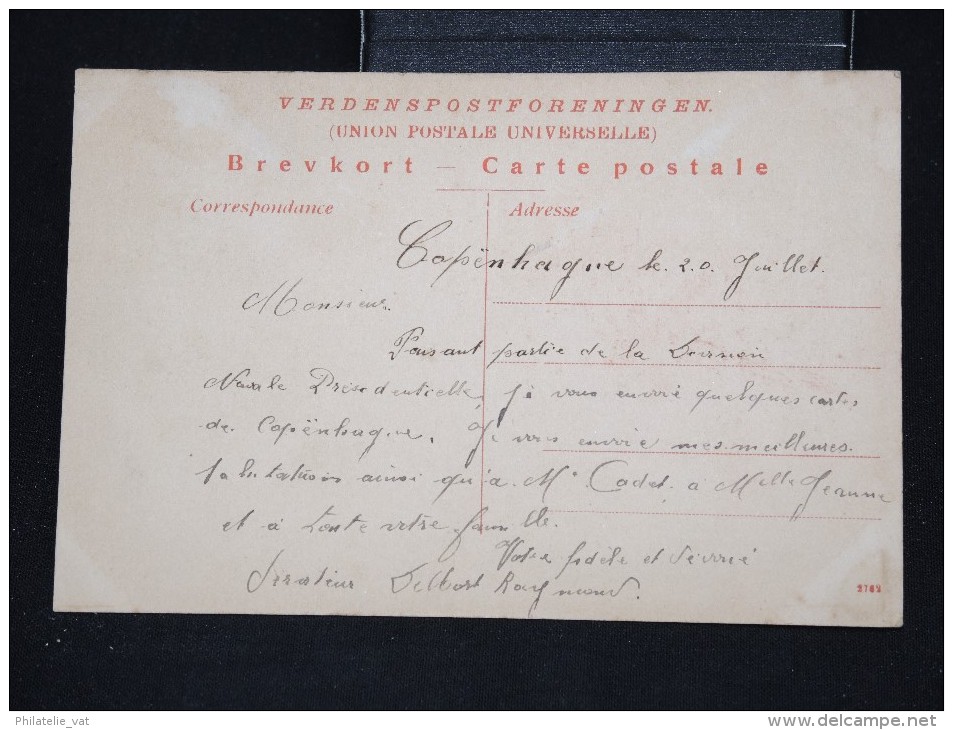 VERDENSPOSTFORENINGEN.
(UNION POSTALE UNIVERSELLE)
Brevkort — Carte postale
Correspondance Adresse
Copënhague le 20 Juillet.
Monsieur.
Faisant partie de la Division
Navale Présidentielle, je vous envoie quelques cartes
de Copënhague. Je vous envoie mes meilleures.
salutations ainsi qu'à Mr Cadet. à Melle Jeanne
et à toute votre famille.
Votre fidèle et
Serviteur Delbort Raymond.
2762
Philatelie_vat
www.delcampe.net